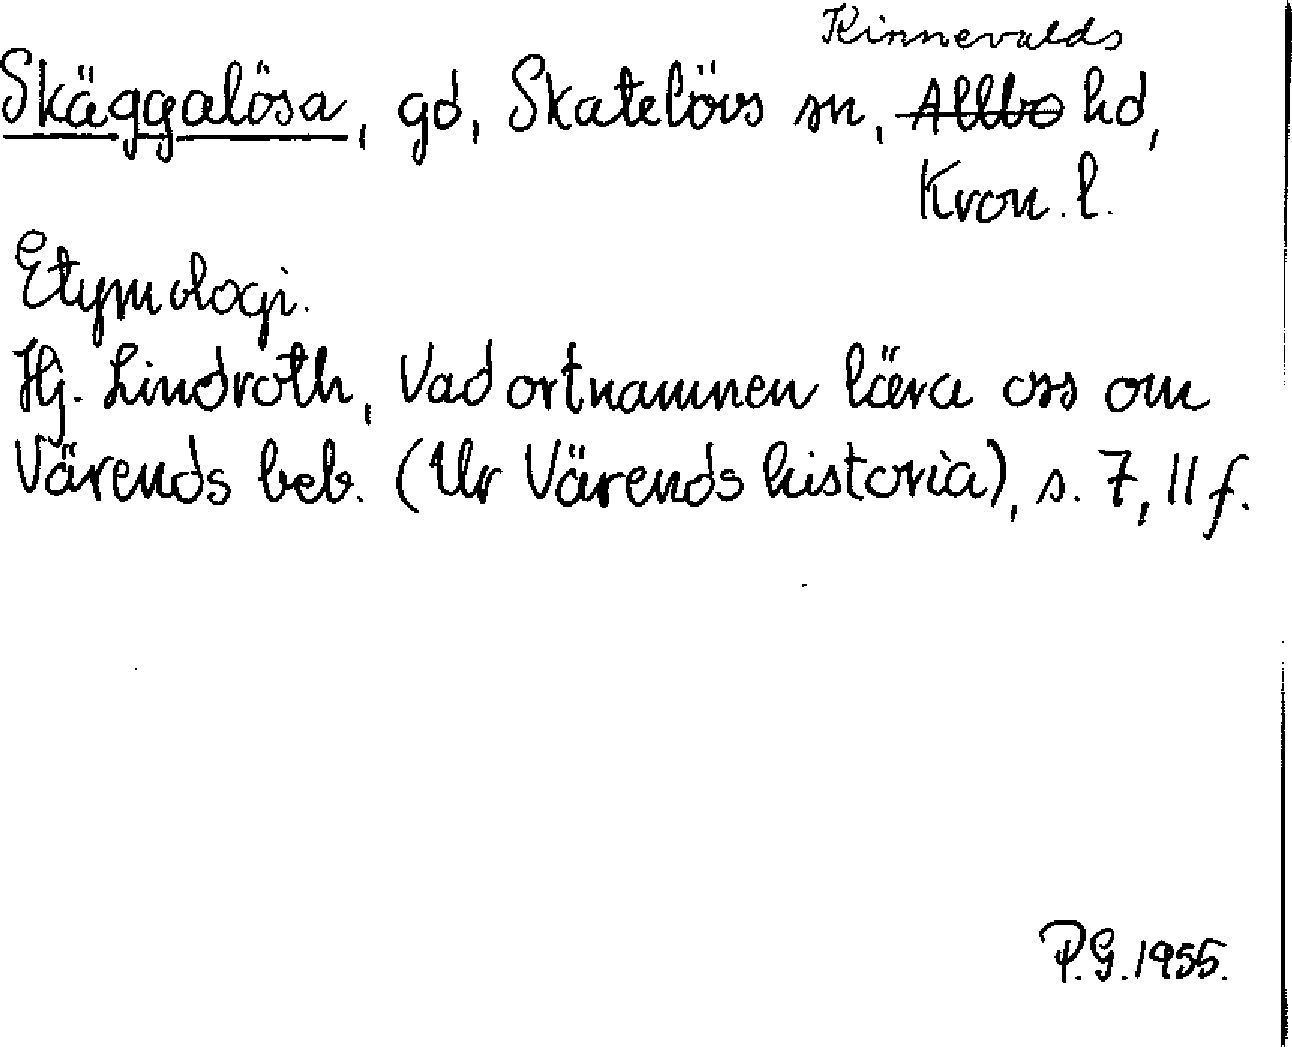 Kinnevalds
Skäggalösa, gd, Skatelövs sn, Allbo hd,
Kron. l.
Etymologi.
Hj. Lindroth, Vad ortnamnen lära oss om
Värends beb. (Ur Värends historia), s. 7, 11 f.
P.G. 1955.